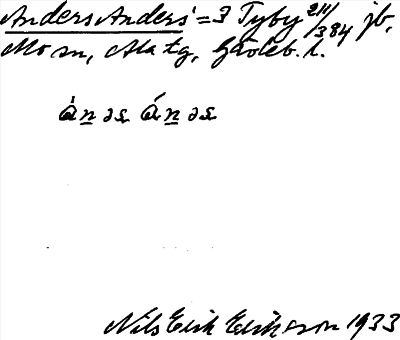 Anders Anders' = 3 Tyby 211/384 jb,
Mo sn, Ala tg, Gävleb. l.
ánəs ánəs
Nils Erik Eriksson 1933